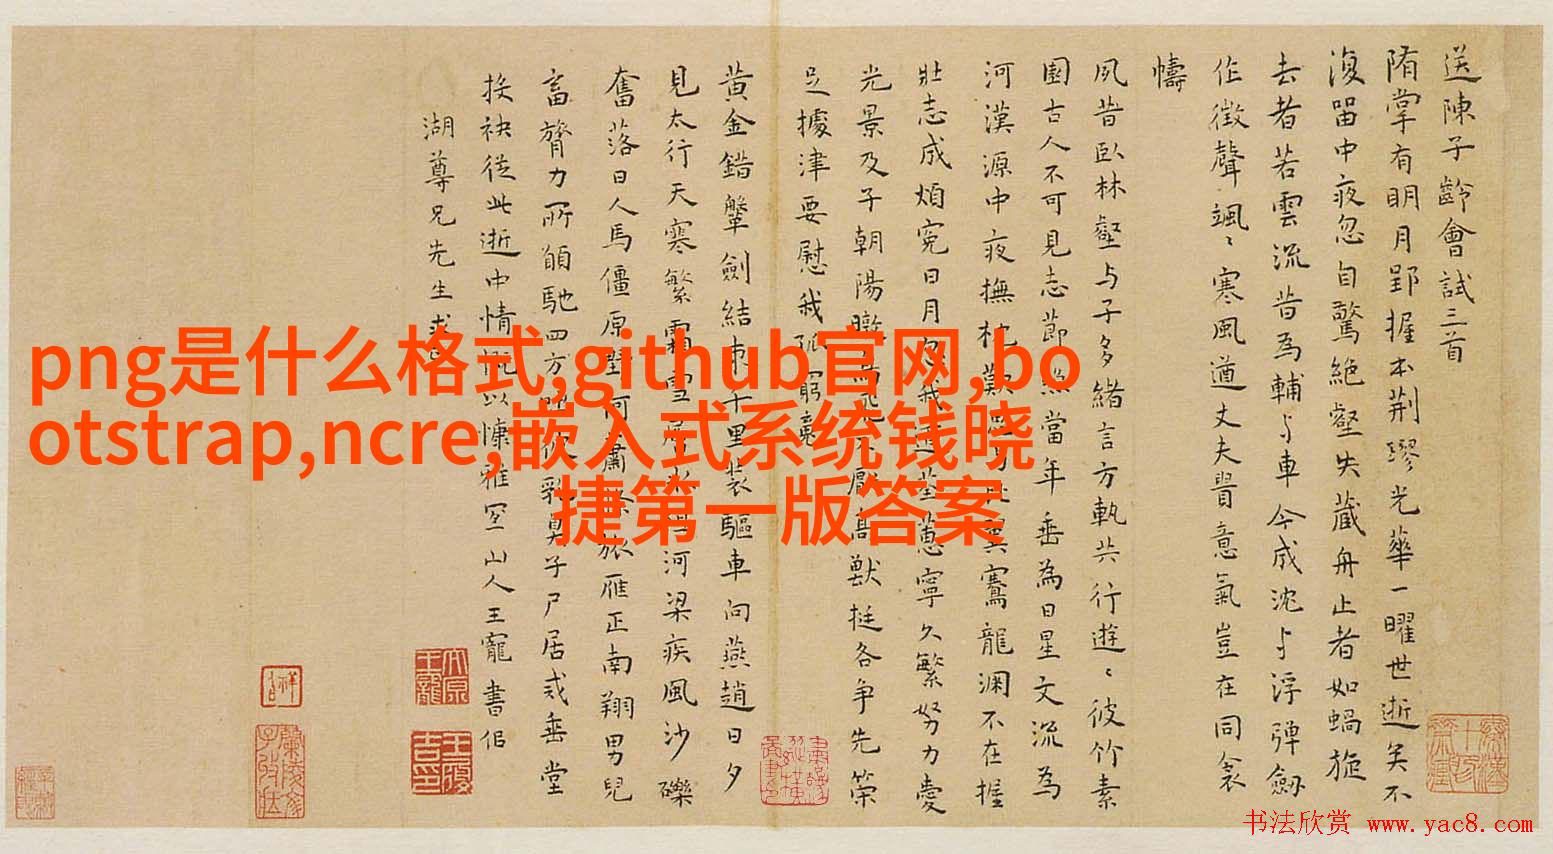 送陳子齡會試三首
隋掌有明月郢握本荆璆光華一曜世逝矣不
復留中夜忽自驚絶壑失藏舟止者如蝸旋
去者若雲流昔為輔与車今成沈与浮弹劔
作徵聲颯〻寒風遒丈夫哿意氣豈在同衾
幬
夙昔臥林壑与子多緒言方執共行遊〻彼竹素
園古人不可見志節當年垂為日星文流為
河漢源中夜撫枕鶱龍淵不在握
壯志成煩寃日月寧久繁努力愛
光景及子朝陽獸挺各争先榮
足據津要慰我
黄金錯鞶劍結束十里裝驅車向燕趙日夕
見太行天寒繁霜雪河梁疾風沙礫
奮落日人馬僵原旅雁正南翔男兒
畜膂力所願馳四方子尸居或垂堂
接袂從此逝中情以慷雅宜山人王寵書侣
湖尊兄先生
png是什么格式,github官网,bo
otstrap,ncre,嵌入式系统钱晓
捷第一版答案
书法欣赏 www.yac8.com